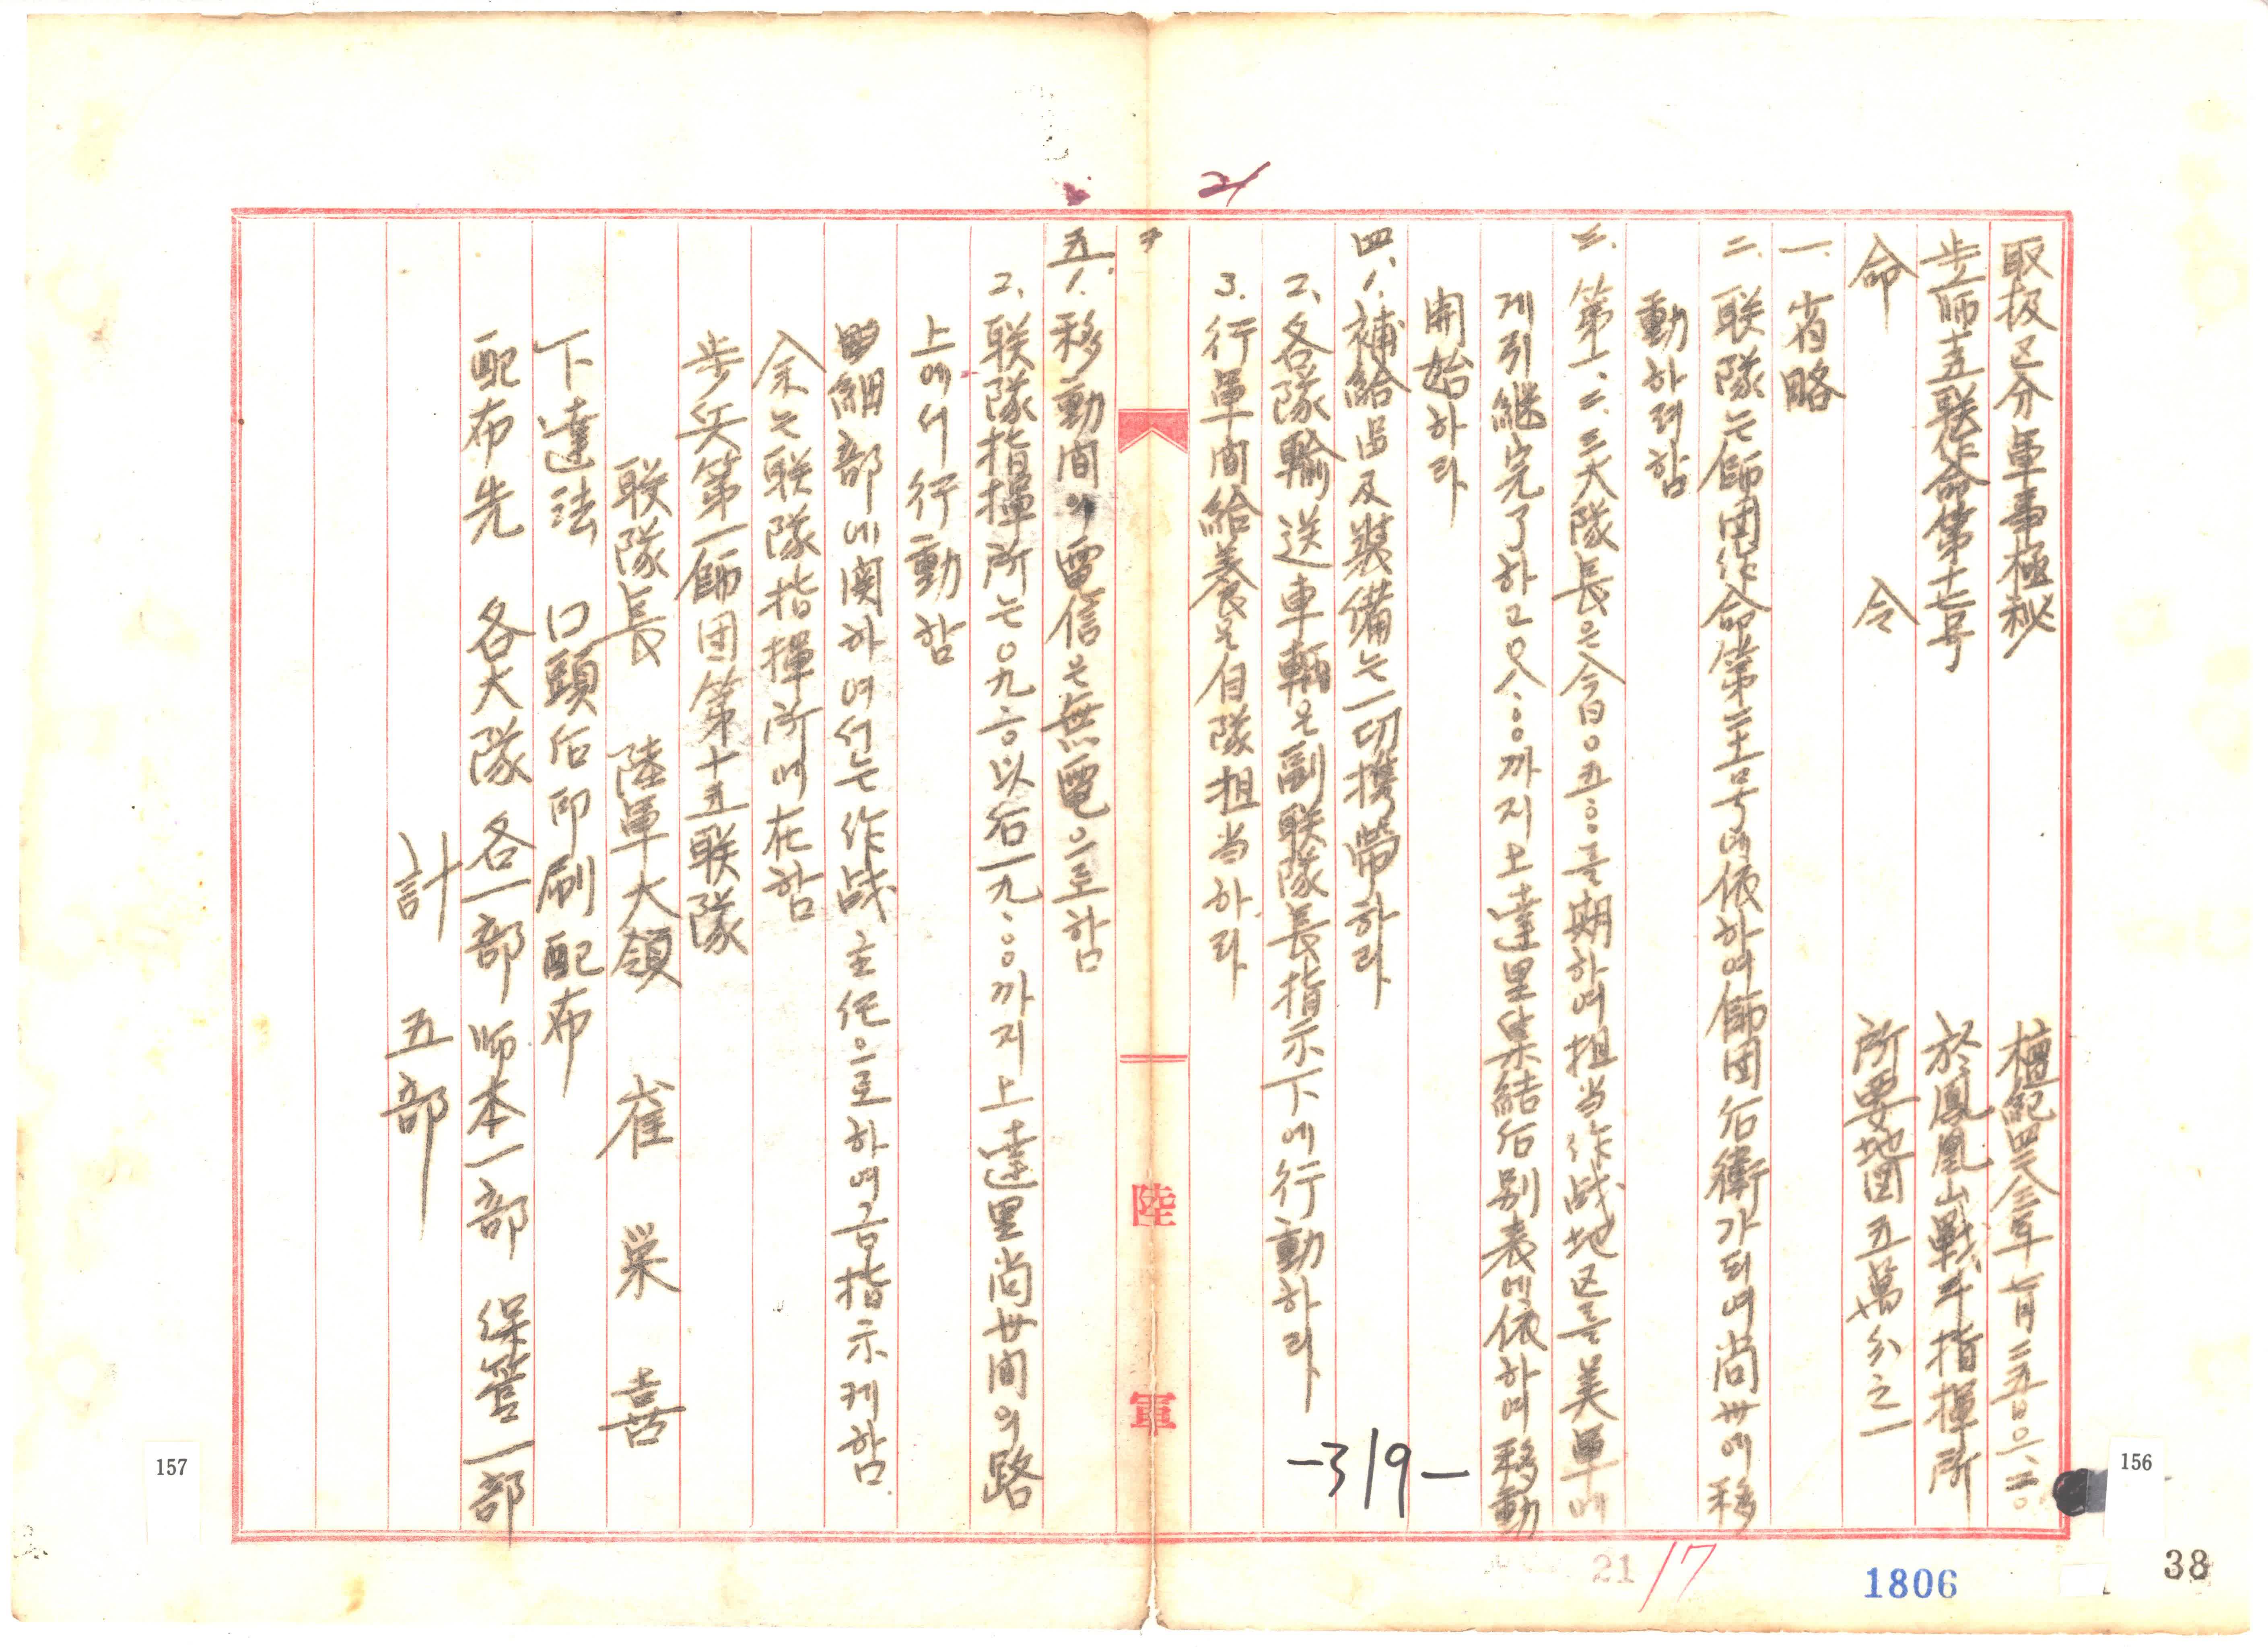 取扱区分 軍事極秘 檀紀四二八三年七月二五日〇一.二〇
步一師十五联作命第十七号 於鳳凰山戰斗指揮所
命 令 所要地図五萬分之一
一. 省略
二. 联隊는師団作命第二十号에依하여師団后衛가되여尚州에移
動하려함
三. 第一、二、三大隊長은今日〇五:〇〇를期하여担当作战地区를美軍에
게引継完了하고〇八:〇〇까지上達里集結后別表에依하여移動
開始하라
四. 1. 補給品及裝備는一切携帶하라
2. 各隊輸送車輌은副联隊長指示下에行動하라
3. 行軍間給養은自隊担当하라
五. 1. 移動間의電信은無電으로함
2. 联隊指揮所는〇九:〇〇以后一九:〇〇까지上達里尚州間의路
上에서行動함
細部에関하여서는作战主任으로하여금指示케함.
余는联隊指揮所에在함
步兵第一師団第十五联隊
联隊長 陸軍大領 崔 栄 喜
下達法 口頭后印刷配布
配布先 各大隊各一部 師本一部 保管一部
計 五部
陸軍
21
-319-
21/7
1806
38
156
157